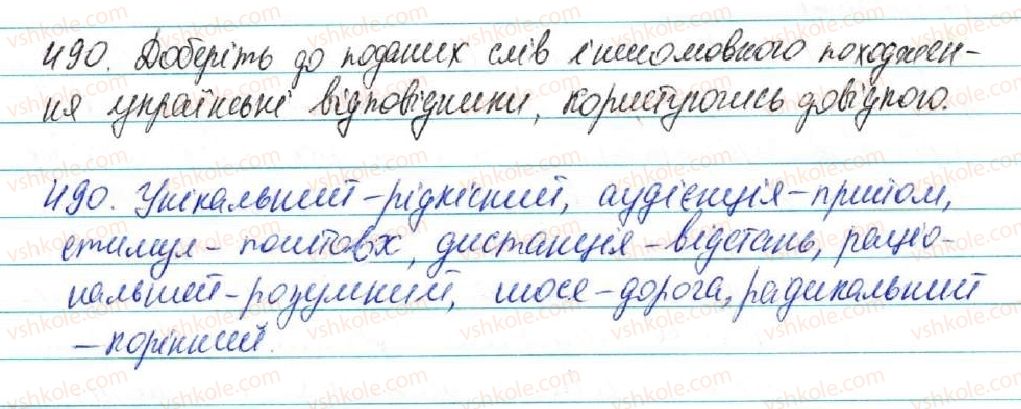 490. Доберіть до поданих слів іншомовного походжен-
ня українські відповідники, користуючись довідкою.
490. Унікальний – рідкісний, аудієнція – прийом,
стимул – поштовх, дистанція – відстань, раціо-
нальний – розумний, шосе – дорога, радикальний
– корінний.